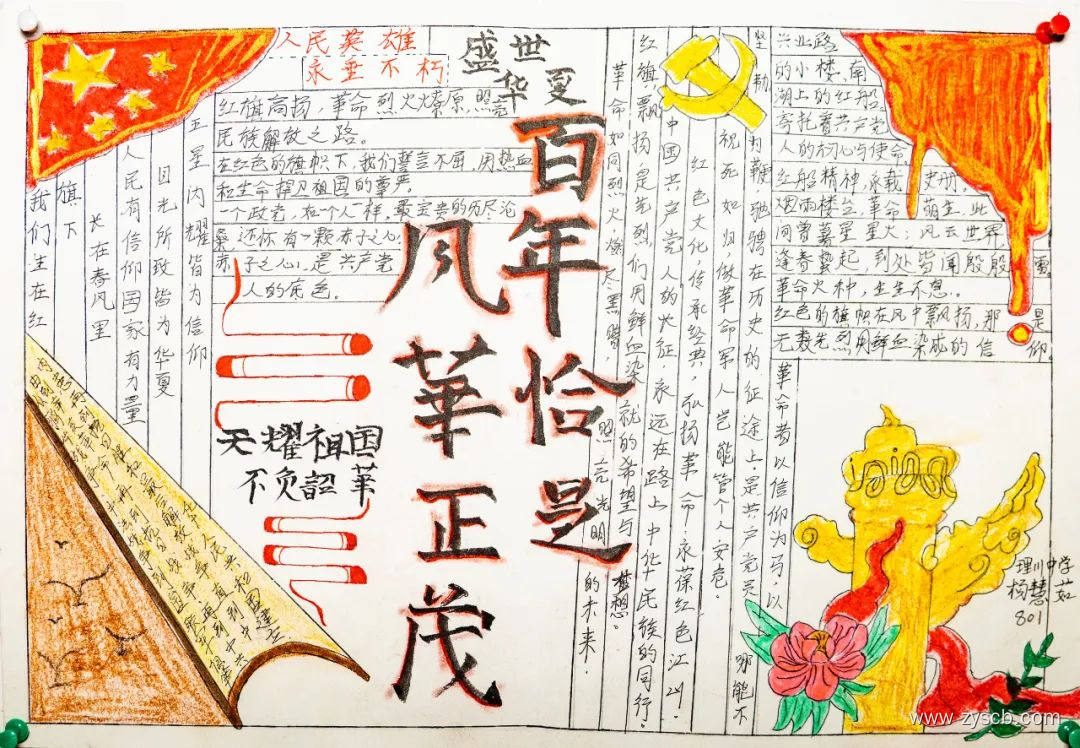 人民英雄
永垂不朽
盛世
华夏
百年恰是
风華正茂
红旗高扬，革命烈火燎原，照亮
民族解放之路。
在红色的旗帜下，我们誓言不屈，用热血
和生命捍卫祖国的尊严。
一个政党，和一个人一样，最宝贵的历尽沧
桑，还怀有一颗赤子之心，
赤子之心，是共产党
人的底色。
天耀祖国
不负韶華
五星闪耀皆为信仰
目光所致皆为华夏
人民有信仰国家有力量
长在春风里
旗下
我们生在红
红旗飘扬是先烈们用鲜血染就的希望与梦想。
革命如同烈火，燎尽黑暗，照亮光明的未来.
中国共产党人的长征，永远在路上中华民族的同行.
红色文化，传承经典，弘扬革命！永葆红色江山！
祝死如归做革命军人岂能管个人安危。
坚勒
为鞭驰骋在历史的征途上，是共产党员
那能不
革命者以信仰为马，以
兴业路
的小楼，南
湖上的红船，
寄托着共产党
人的初心与使命，
红船精神，永载史册，
烟雨楼台，革命萌生，此
间曾著星星火；风云世界，
逢春蛰起，到处皆闻殷殷雷
革命火种，生生不息。
红色的旗帜在风中飘扬，那是
无数先烈用鲜血染成的信仰
理川中学
杨慧茹
801
www.zyscb.com